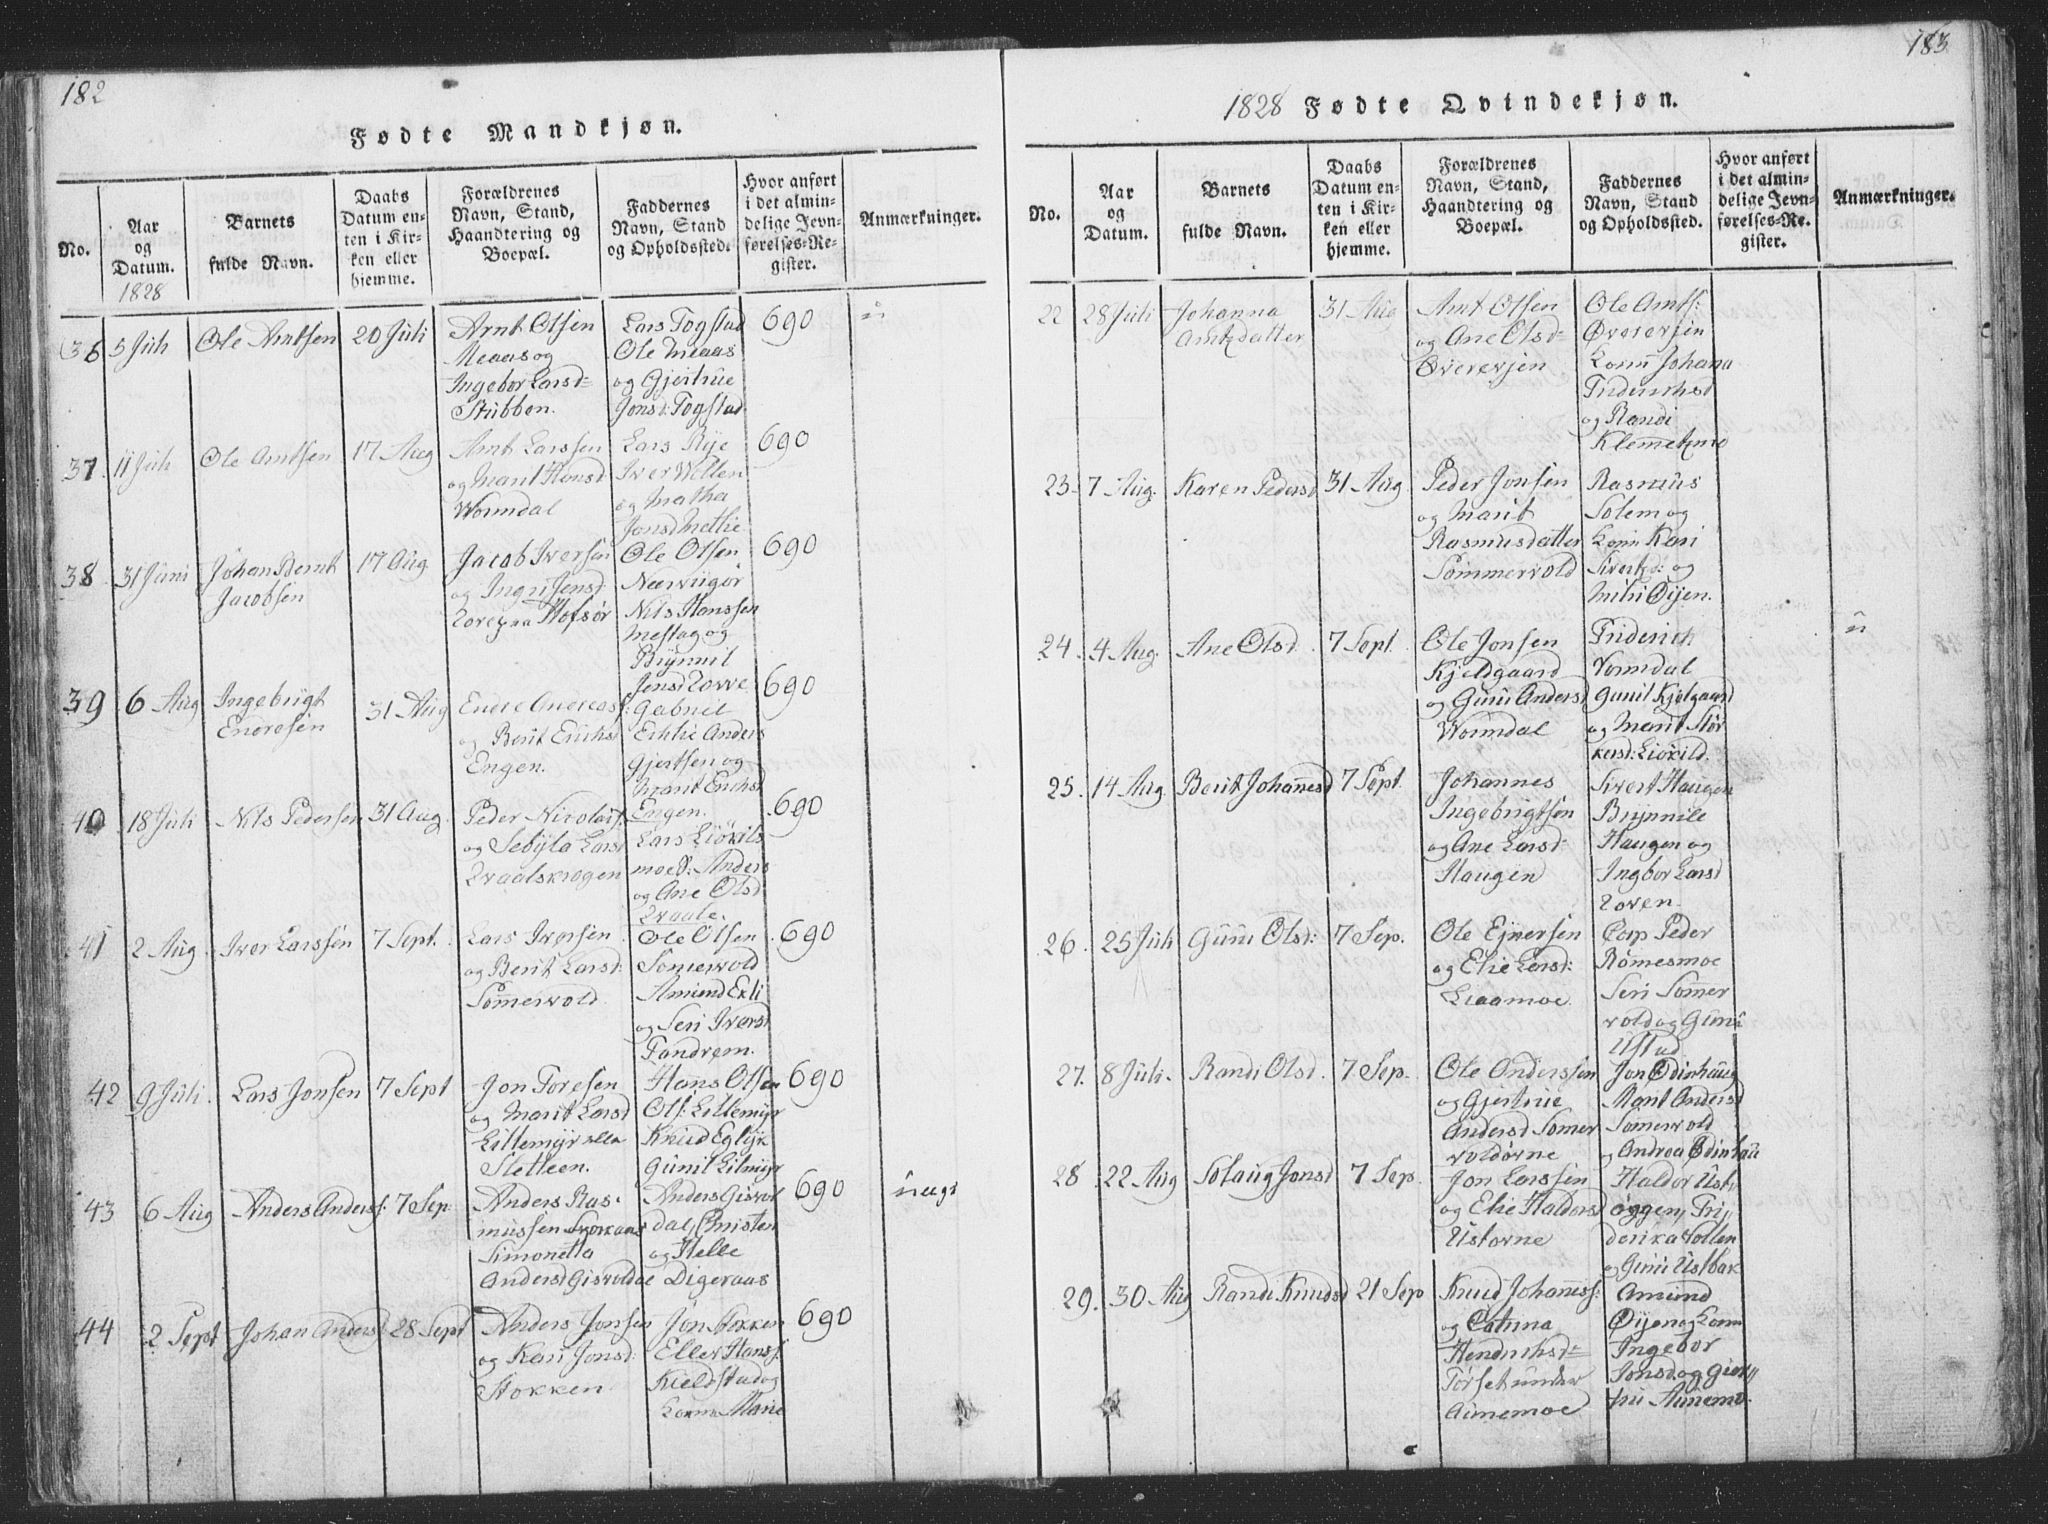 182
Fødte Mandkjøn.
No.
Aar
og
Datum.
1828
Barnets
fulde Navn.
Daabs
Datum en-
ten i Kir-
ken eller
hjemme.
Forældrenes
Navn, Stand,
Haandtering og
Boepæl.
Faddernes
Navn, Stand
og Opholdssted.
Hvor anført
i det almin-
delige Jevn-
førelses-Re-
gister.
Anmærkninger.
36
5 Juli
Ole Arntsen
20 Juli
Arnt Olsen
Meaas og
Ingebor Larsd=
Stubben.
Lars Togstad
Ole Meaas
og Gjertrue
Jonsd: Togstad
690
37
11 Juli
Ole Arntsen
17 Aug
Arnt Larssen
og Marit Hansd
Wormdal
Lars Rye
Iver Wollen
og Matha
Jonsd Methe
690
38
31 Juni
Johan Bernt
Jacobsen
17 Aug
Jacob Iversen
og Ingri Jensd
Zore paa Hofsør
Ole Olsen
Nerviigør
Nils Hanssen
Mestag og
Brynnil
Jensd Zovve
690
39
6 Aug
Ingebrigt
Endresen
31 Aug
Endre Andreas:
og Berit Erichsd
Engen.
Gabriel
Echlie Anders
Gjertsen og
Marit Erichsd
Engen.
690
40
18 Juli
Nils Pedersen
31 Aug.
Peder Nicolais:
og Sebyla Larsd
Qvaalskrogen
Lars Liøkils
moe P: Anders
og Ane Olsd
Qvaale.
690
41
2 Aug.
Iver Larssen
7 Sept.
Lars Iversen
og Berit Larsd:
Somervold
Ole Olsen
Somervold
Amund Exli
og Seri Iversd
Tandrem.
690
42
9 Juli.
Lars Jonsen
7 Sept
Jon Toresen
og Marit Larsd
Lillemyr alla
Sletleen.
Hans Olsen
Ols: Lillemyr
Knud Eglyk
Gunil Lilmyr
690
43
6 Aug
Anders Anderss:
7 Sep
Anders Ras-
mussen Svorkaas
Simonetta
Andersd Gisvoldal
Anders Gisvol
dal, Christen
og Helle
Digeraas
690
44
2 Sept
Johan Anders
28 Sept
Anders Jonsen
og Kari Jonsd:
Stokken
Jon Stokken
Eller Hanss:
Kjeldstad og
Konn Marie
690
183
1828 Fødte Qvindekjøn.
No.
Aar
og
Datum.
Barnets
fulde Navn.
Daabs
Datum en-
ten i Kir-
ken eller
hjemme.
Forældrenes
Navn, Stand,
Haandtering og
Boepæl.
Faddernes
Navn, Stand
og Opholdssted.
Hvor anført
i det almin-
delige Jevn-
førelses-Re-
gister.
Anmærkninger.
22
28 Juli
Johanna
Arntzdatter
31 Aug
Arnt Olsen
og Ane Olsd=
Øverevjen
Ole Arnts:
Øverevjen
Konn Johana
Friderichsd
og Randi
Klemetzmo
23.
7 Aug.
Karen Pedersd
31 Aug
Peder Jonsen
og Marit
Rasmusdatter
Sommervold
Rasmus
Solem og
Konn Kari
Sivertz: og
Mili Øijen.
24.
4 Aug.
Ane Olsd.
7 Sept.
Ole Jonsen
Kjeldgaard
og Guru Andersd
Wormdal
Friderich
Vormdal
Gunil Kjelgaard
og Marit Stør
kersd: Liøkild.
25.
14 Aug
Berit Johanesd
7 Sept.
Johannes
Ingebrigtsen
og Ane Larsd=
Haugen
Sivert Haugen
Brynnile
Haugen og
Ingbor Larsd
Zoven.
26.
25 Juli
Guru Olsd:
7 Sep.
Ole Ejnersen
og Elie Larsd:
Liaamoe.
Corp Peder
Rømesmoe
Seri Somer
vold og Guru
Ustad
27.
8 Juli.
Randi Olsd.
7 Sep.
Ole Anderssen
og Gjertrue
Andersd Somer
voldørne
Jon Ødinhaug
Marit Andersd
Somervold
og Andrea Ødinhau
28
22 Aug
Solaug Jonsd
7 Sep.
Jon Larssen
og Elie Haldorsd
Ustørne
Haldor Ust
øggen, Fri,,
derika Sollen
og Guru Ustbak
29.
30 Aug
Randi Knudsd
21 Sep
Knud Johaness:
og Catrina
Hendrichsd=
Torset under
Aunemoe
Amund
Øijen og Konn
Ingebor
Jonsd og Giert
Aunemo.